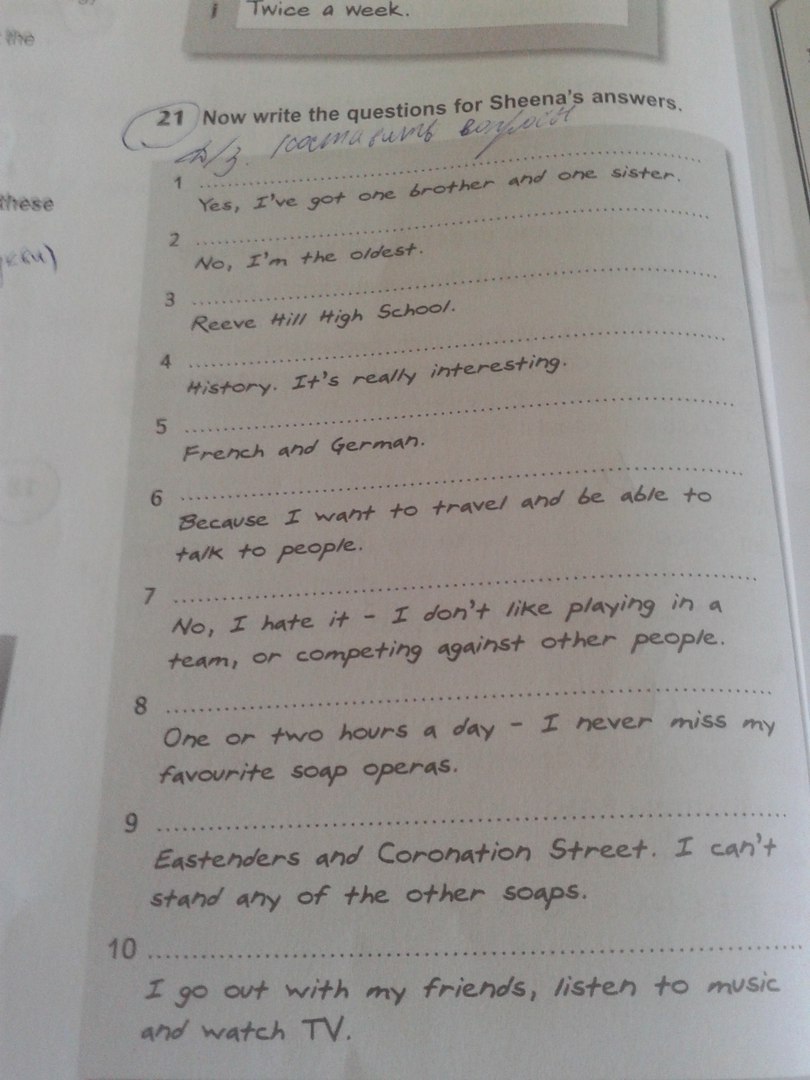 the
i Twice a week.
21 Now write the questions for Sheena's answers.
д/з. составить вопросы
these
1
Yes, I've got one brother and one sister.
2
No, I'm the oldest.
3
Reeve Hill High School.
4
History. It's really interesting.
5
French and German.
6
Because I want to travel and be able to
talk to people.
7
No, I hate it – I don't like playing in a
team, or competing against other people.
8
One or two hours a day – I never miss my
favourite soap operas.
9
Eastenders and Coronation Street. I can't
stand any of the other soaps.
10
I go out with my friends, listen to music
and watch TV.